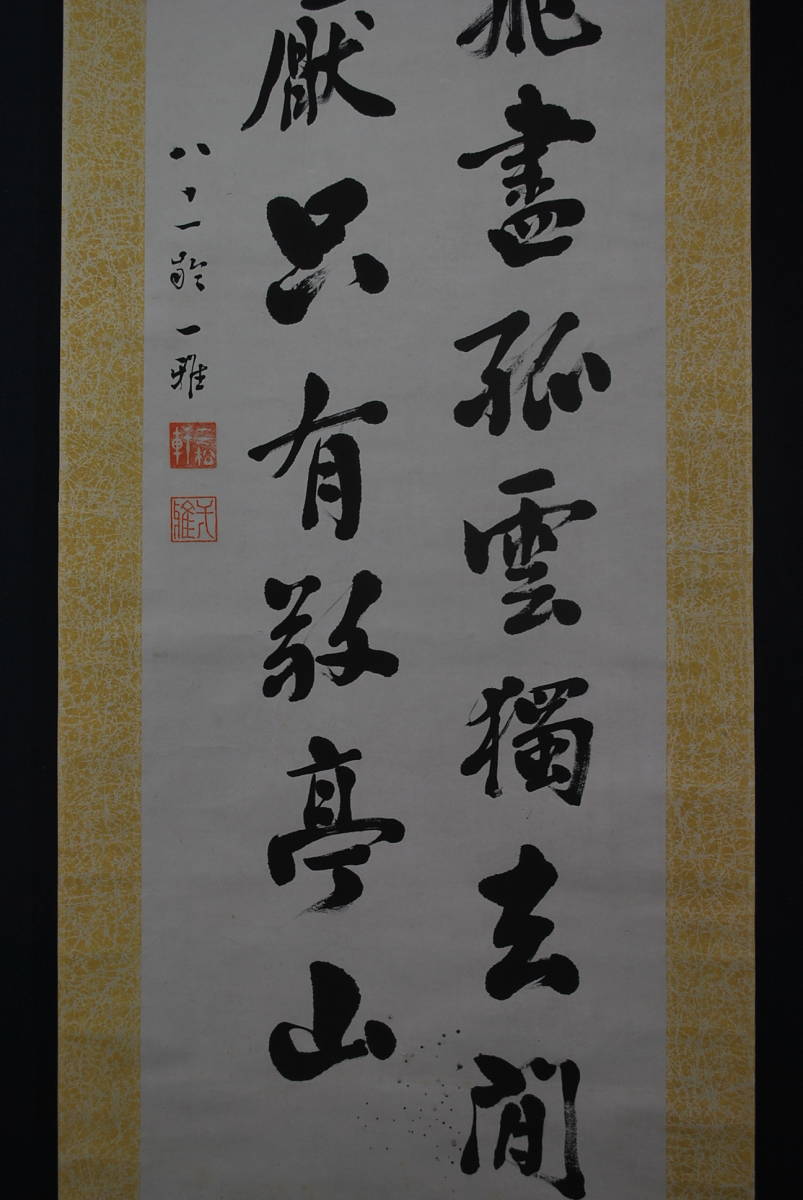 飛盡孤雲獨去閒
厭只有敬亭山
八十一齡一雅